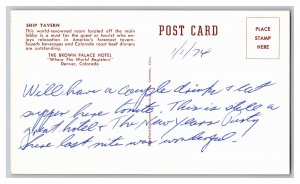 SHIP TAVERN
This world-renowned room located off the main
lobby is a must for the guest or tourist who en-
joys relaxation in America's foremost tavern.
Superb beverages and Colorado most beef dinners
are outstanding.
THE BROWN PALACE HOTEL
"Where The World Registers"
Denver, Colorado
POST CARD
PLACE
STAMP
HERE
1/1/74
Will have a couple drinks & eat
supper here tonite. This is still a
great hotel & The New Years Party
here last nite was wonderful.